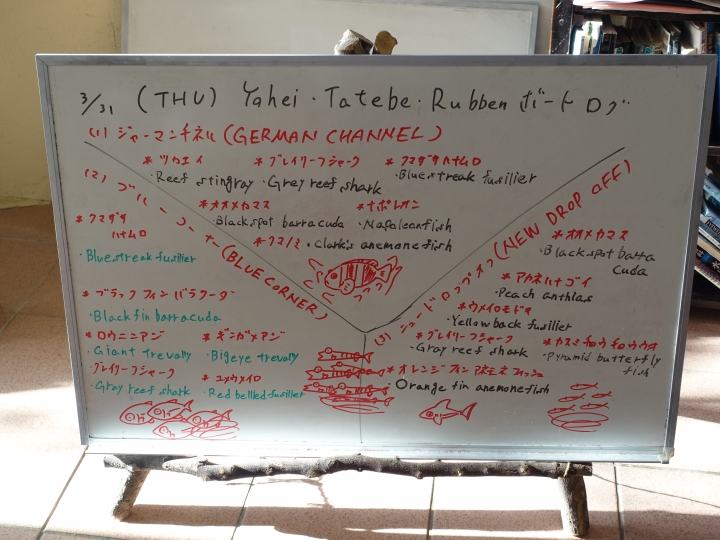 3/31 (THU) Yahei・Tatebe・Rubben ボートログ
(1) ジャーマンチネル (GERMAN CHANNEL)
* ツカエイ * グレイリーフシャーク * クマザサハナムロ
・Reef stingray ・Grey reef shark ・Bluestreak fusilier
* オオメカマス * ナポレオン
・Black spot barracuda ・Napoleanfish
* クマノミ ・Clark's anemonefish
(2) ブルーコーナー (BLUE CORNER)
* クマザサ
ハナムロ
・Bluestreak fusilier
* ブラックフィンバラクーダ
・Blackfin barracuda
* ロウニンアジ * ギンガメアジ
・Giant trevally ・Bigeye trevally
* グレイリーフシャーク * ユメウメイロ
・Gray reef shark ・Red bellied fusilier
(3) ニュードロップオフ (NEW DROP OFF)
* オオメカマス
・Black spot barra
cuda
* アカネハナゴイ
・Peach anthias
* ウメイロモドキ
・Yellow back fusilier
* グレイリーフシャーク * カスミチョウチョウウオ
・Gray reef shark ・Pyramid butterfly
fish
* オレンジフィンアネモネフィッシュ
・Orange fin anemonefish